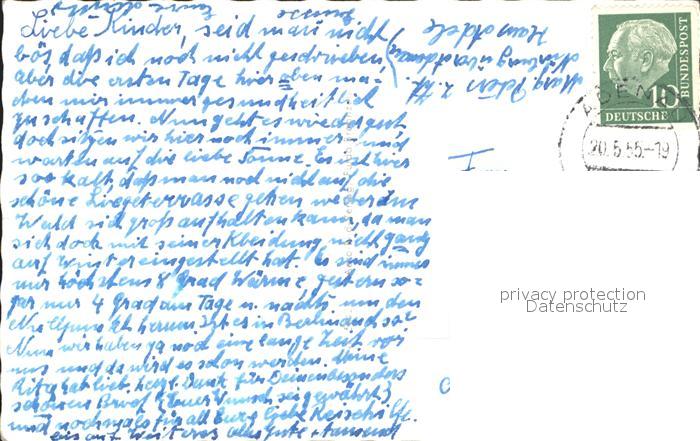 Liebe Kinder, seid man nicht
bös, daß ich noch nicht geschrieben
aber die ersten Tage hier oben ma-
chen mir immer gesundheitlich
zu schaffen. Nun geht es wieder gut,
doch sitzen wir hier noch immer und
warten auf die liebe Sonne. Es ist hier
so kalt, daß man noch nicht auf die
schöne Liegeterrasse gehen weder im
Wald sich groß aufhalten kann, da man
sich doch mit seiner Kleidung nicht ganz
auf Winter eingestellt hat. Es sind immer
nur höchstens 8 Grad Wärme, gestern so-
gar nur 4 Grad am Tage u. nachts um den
Nullpunkt herum. Ist es in Berlin auch so?
Nun wir haben ja noch eine lange Zeit vor
uns und da wird es schon werden. Meine
Rita hab lieb. herzl. Dank für Deinen besonders
schönen Brief (Euer Wunsch sei gewährt)
und nochmals für all Eure liebe Reisehilfe.
bis auf Weiteres alles Gute + tausend
10
DEUTSCHE
BUNDESPOST
ADEN
20.5.55.-19
privacy protection
Datenschutz